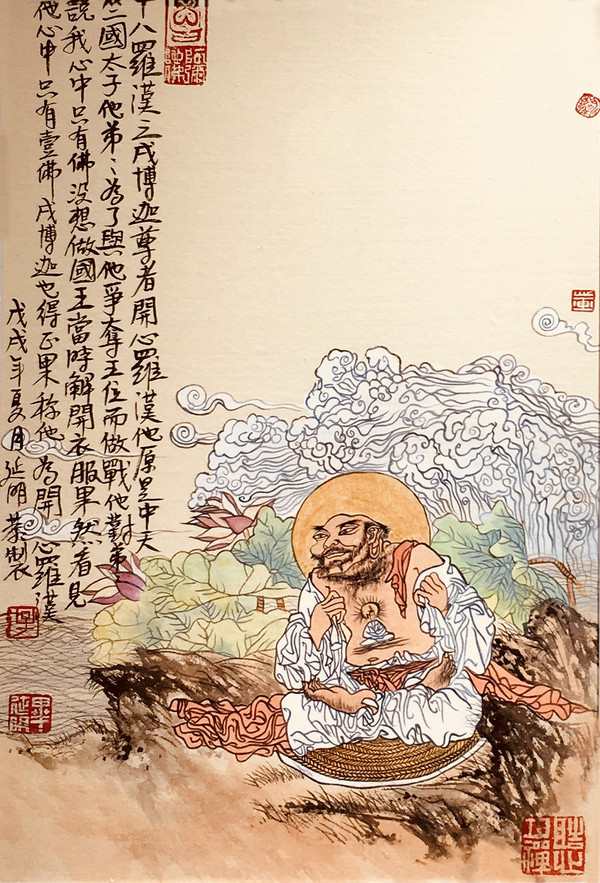 十八羅漢之戌博迦尊者開心羅漢他原是中天
竺二國太子他弟〻為了與他爭奪王位而做戰他對弟〻
說我心中只有佛沒想做國王當時解開衣服果然看見
他心中只有壹佛戌博迦也得正果称他為開心羅漢
戊戌年夏月延明恭製